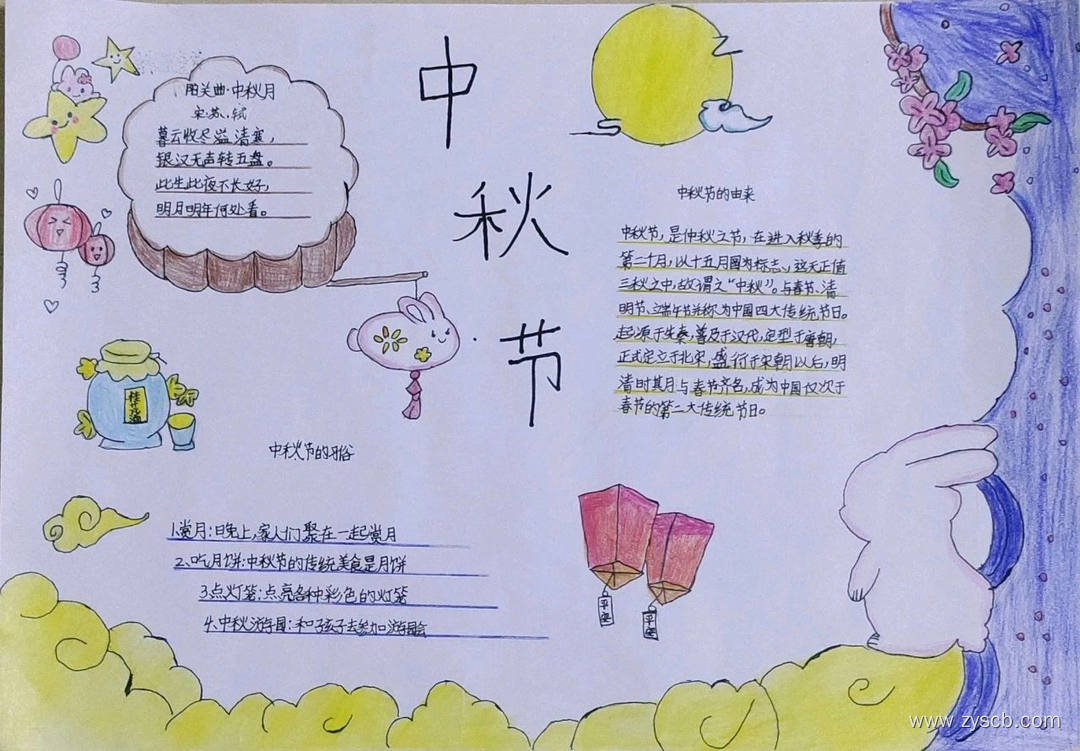 中
秋
节
阳关曲·中秋月
宋·苏轼
暮云收尽溢清寒，
银汉无声转玉盘。
此生此夜不长好，
明月明年何处看。
中秋节的由来
中秋节，是仲秋之节，在进入秋季的
第二个月，以十五月圆为标志，这天正值
三秋之中，故谓之“中秋”。与春节、清
明节、端午节并称为中国四大传统节日。
起源于先秦，普及于汉代，定型于唐朝，
正式定立于北宋，盛行于宋朝以后，明
清时其月与春节齐名，成为中国仅次于
春节的第二大传统节日。
桂花酒
中秋节的习俗
1.赏月：晚上，家人们聚在一起赏月
2.吃月饼：中秋节的传统美食是月饼
3.点灯笼：点亮各种彩色的灯笼
4.中秋游园：和孩子去参加游园会
平安
平安
www.zyscb.com